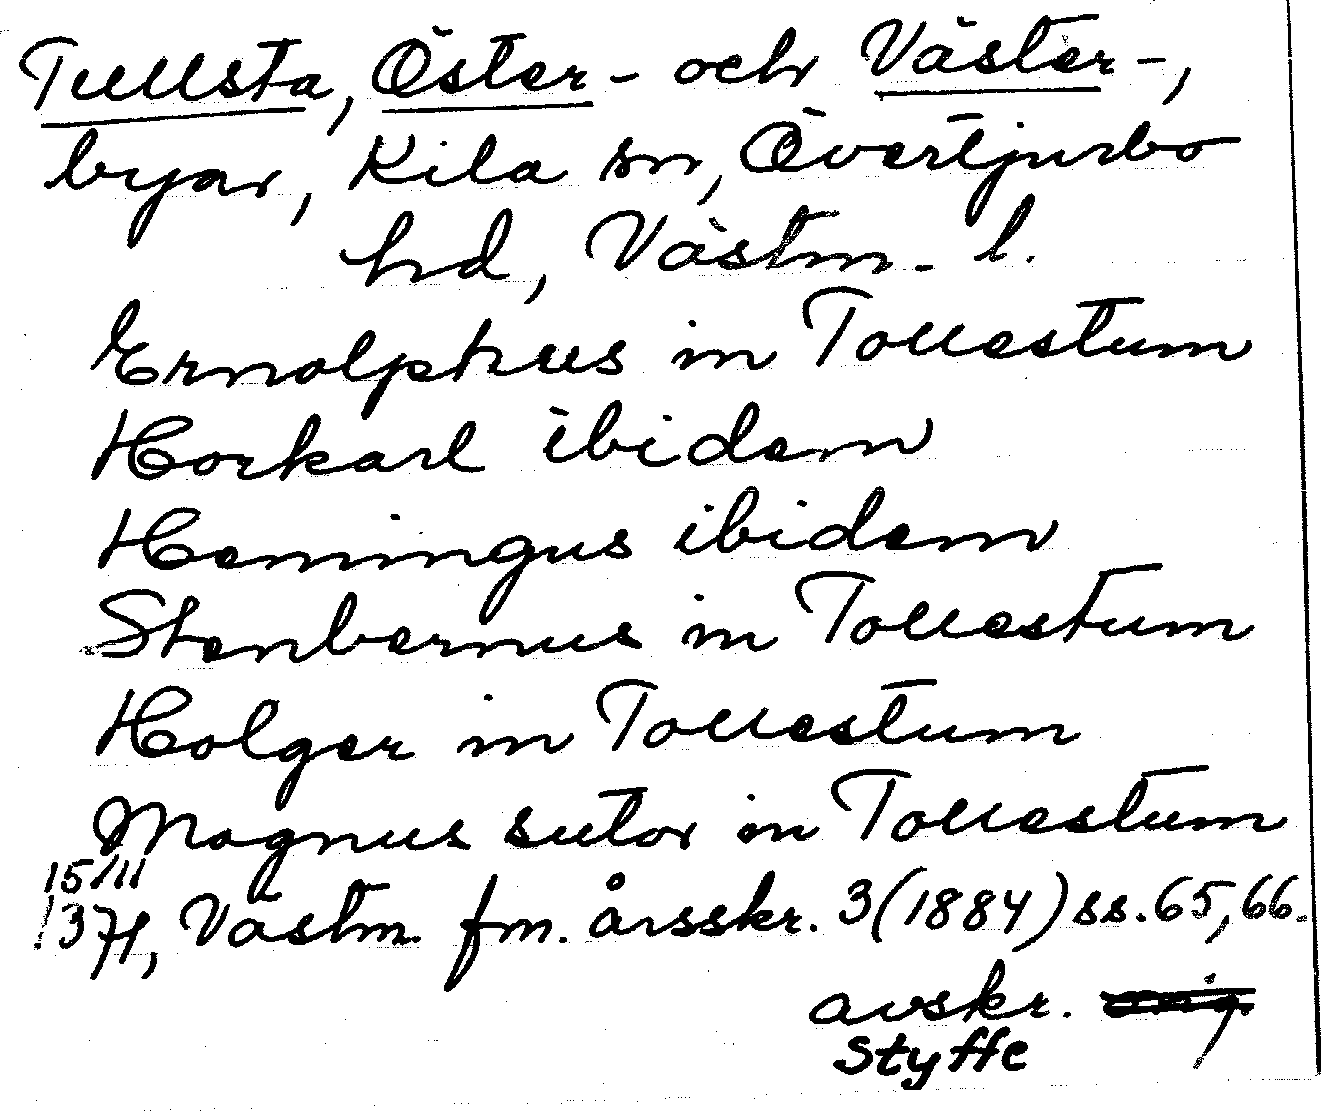 Tullsta, Öster- och Väster-,
byar, Kila sn, Övertjurbo
hd, Västm. l.
Ernolphus in Tollestum
Horkarl ibidem
Hemingus ibidem
Stenbernus in Tollestum
Holger in Tollestum
Magnus sutor in Tollestum
15/11
1371, Västm. fm. årsskr. 3 (1884) ss. 65, 66.
avskr.
Styffe